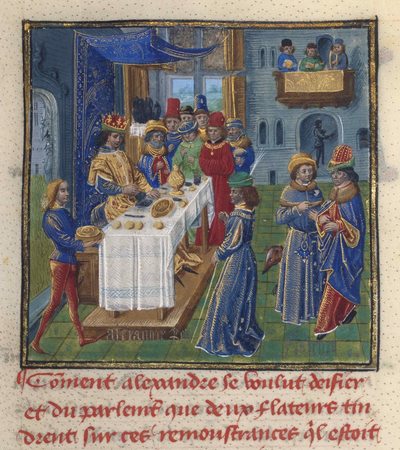 Alexandre
¶ Cõment alexandre se voulut deifier
et du parlemt̃ que deux flateurs tin
drent sur ces remoustrances q̃l estoit